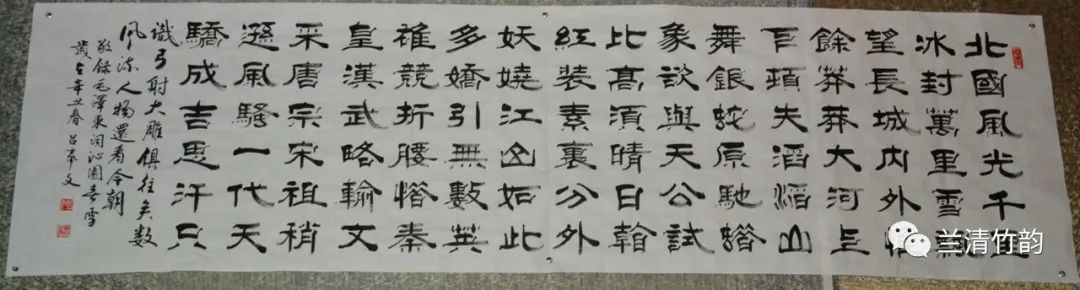 北國風光千里
冰封萬里雪飄
望長城內外惟
餘莽莽大河上
下頓失滔滔山
舞銀蛇原馳蠟
象欲與天公試
比高須晴日看
紅裝素裹分外
妖嬈江山如此
多嬌引無數英
雄競折腰惜秦
皇漢武略輸文
采唐宗宋祖稍
遜風騷一代天
驕成吉思汗只
識弓射大雕俱往矣數
風流人物還看今朝
敬錄毛澤東詞沁園春雪
歲在辛丑春 呂
兰清竹韵